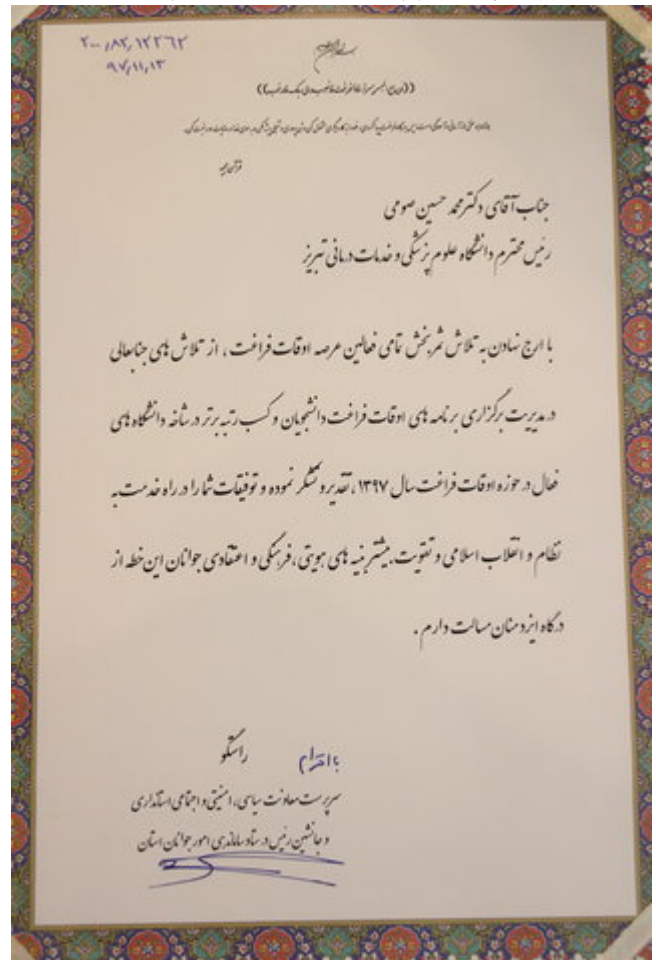 ۲۰۰/۸۲/۱۲۲۶۲
۹۷/۱۱/۱۳
قرآن مجید
جناب آقای دکتر محمد حسین صومی
رئیس محترم دانشگاه علوم پزشکی و خدمات درمانی تبریز
با ارج نهادن به تلاش ثمربخش تمامی فعالین عرصه اوقات فراغت ، از تلاش های جنابعالی
در مدیریت برگزاری برنامه های اوقات فراغت دانشجویان و کسب رتبه برتر در شاخه دانشگاه های
فعال در حوزه اوقات فراغت سال ۱۳۹۷ ، تقدیر و تشکر نموده و توفیقات شما را در راه خدمت به
نظام و انقلاب اسلامی و تقویت بیشتر بنیه های هویتی ، فرهنگی و اعتقادی جوانان این خطه از
درگاه ایزد منان مسالت دارم .
با احترام راستگو
سرپرست معاونت سیاسی ، امنیتی و اجتماعی استانداری
و جانشین رئیس در ستاد ساماندهی امور جوانان استان